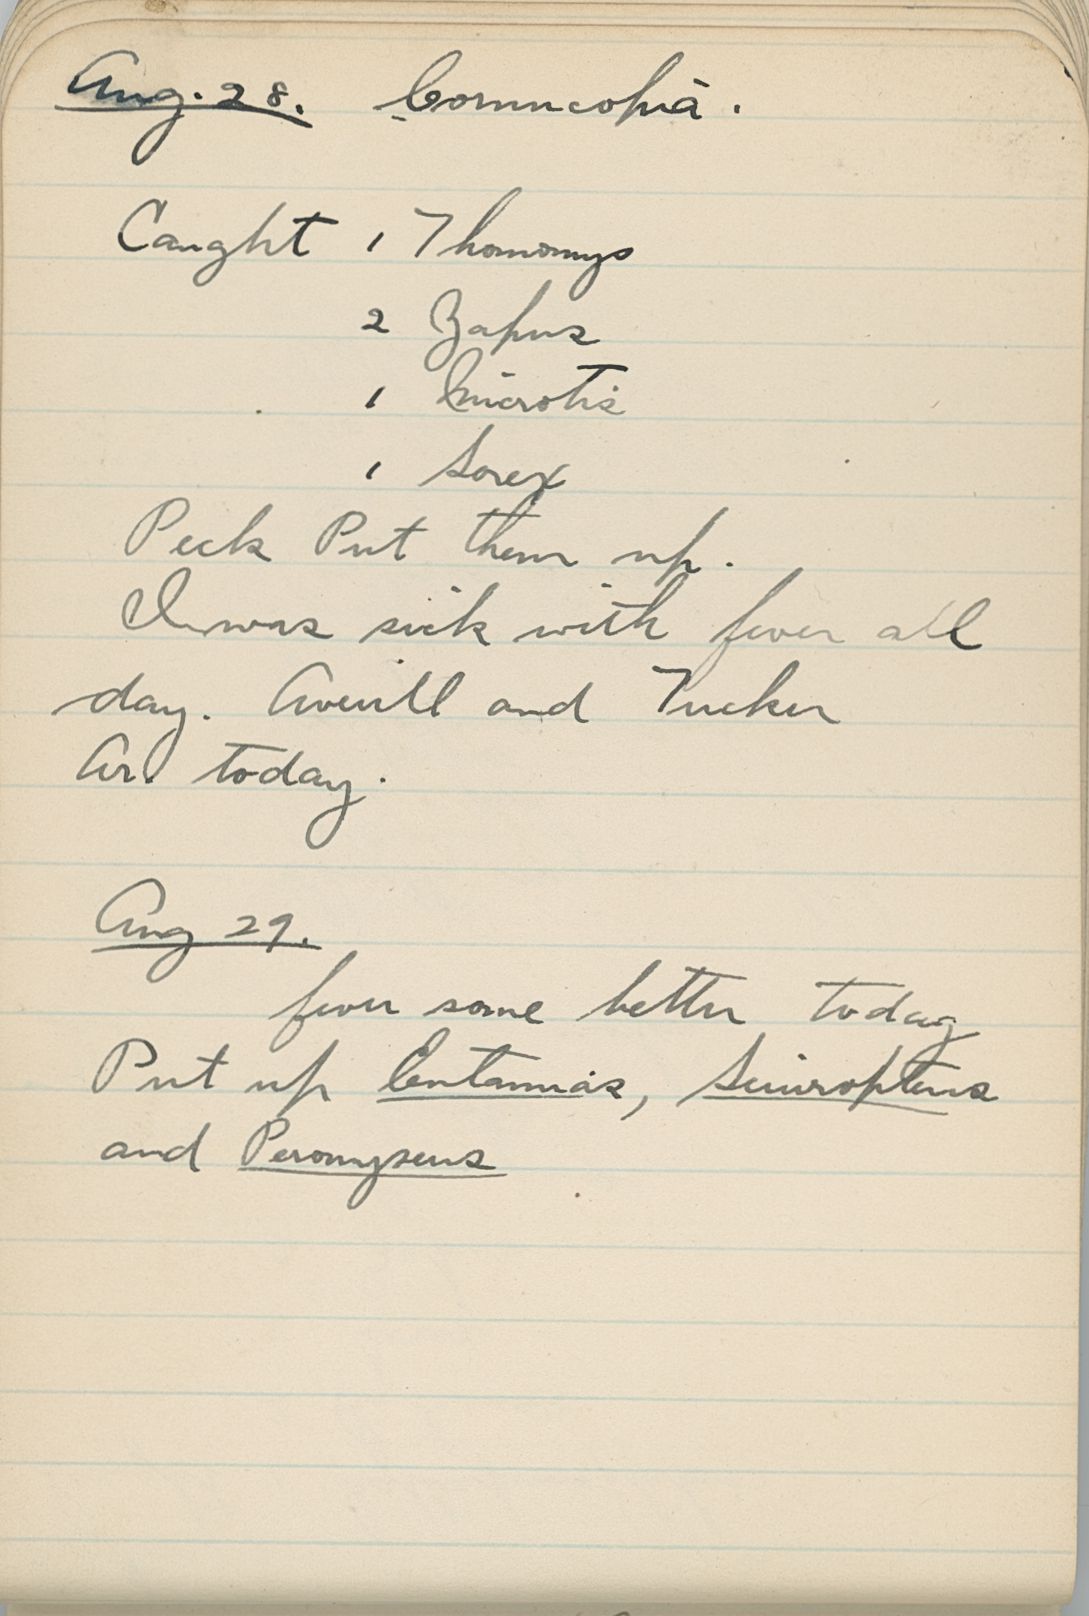 Aug. 28. Cornucopia.
Caught 1 Thomomys
2 Zapus
1 Microtis
1 Sorex
Peck Put them up.
I was sick with fever all
day. Averill and Tucker
Ar. today.
Aug 29.
fever some better today
Put up Eutamias, Sciuropterus
and Peromyscus